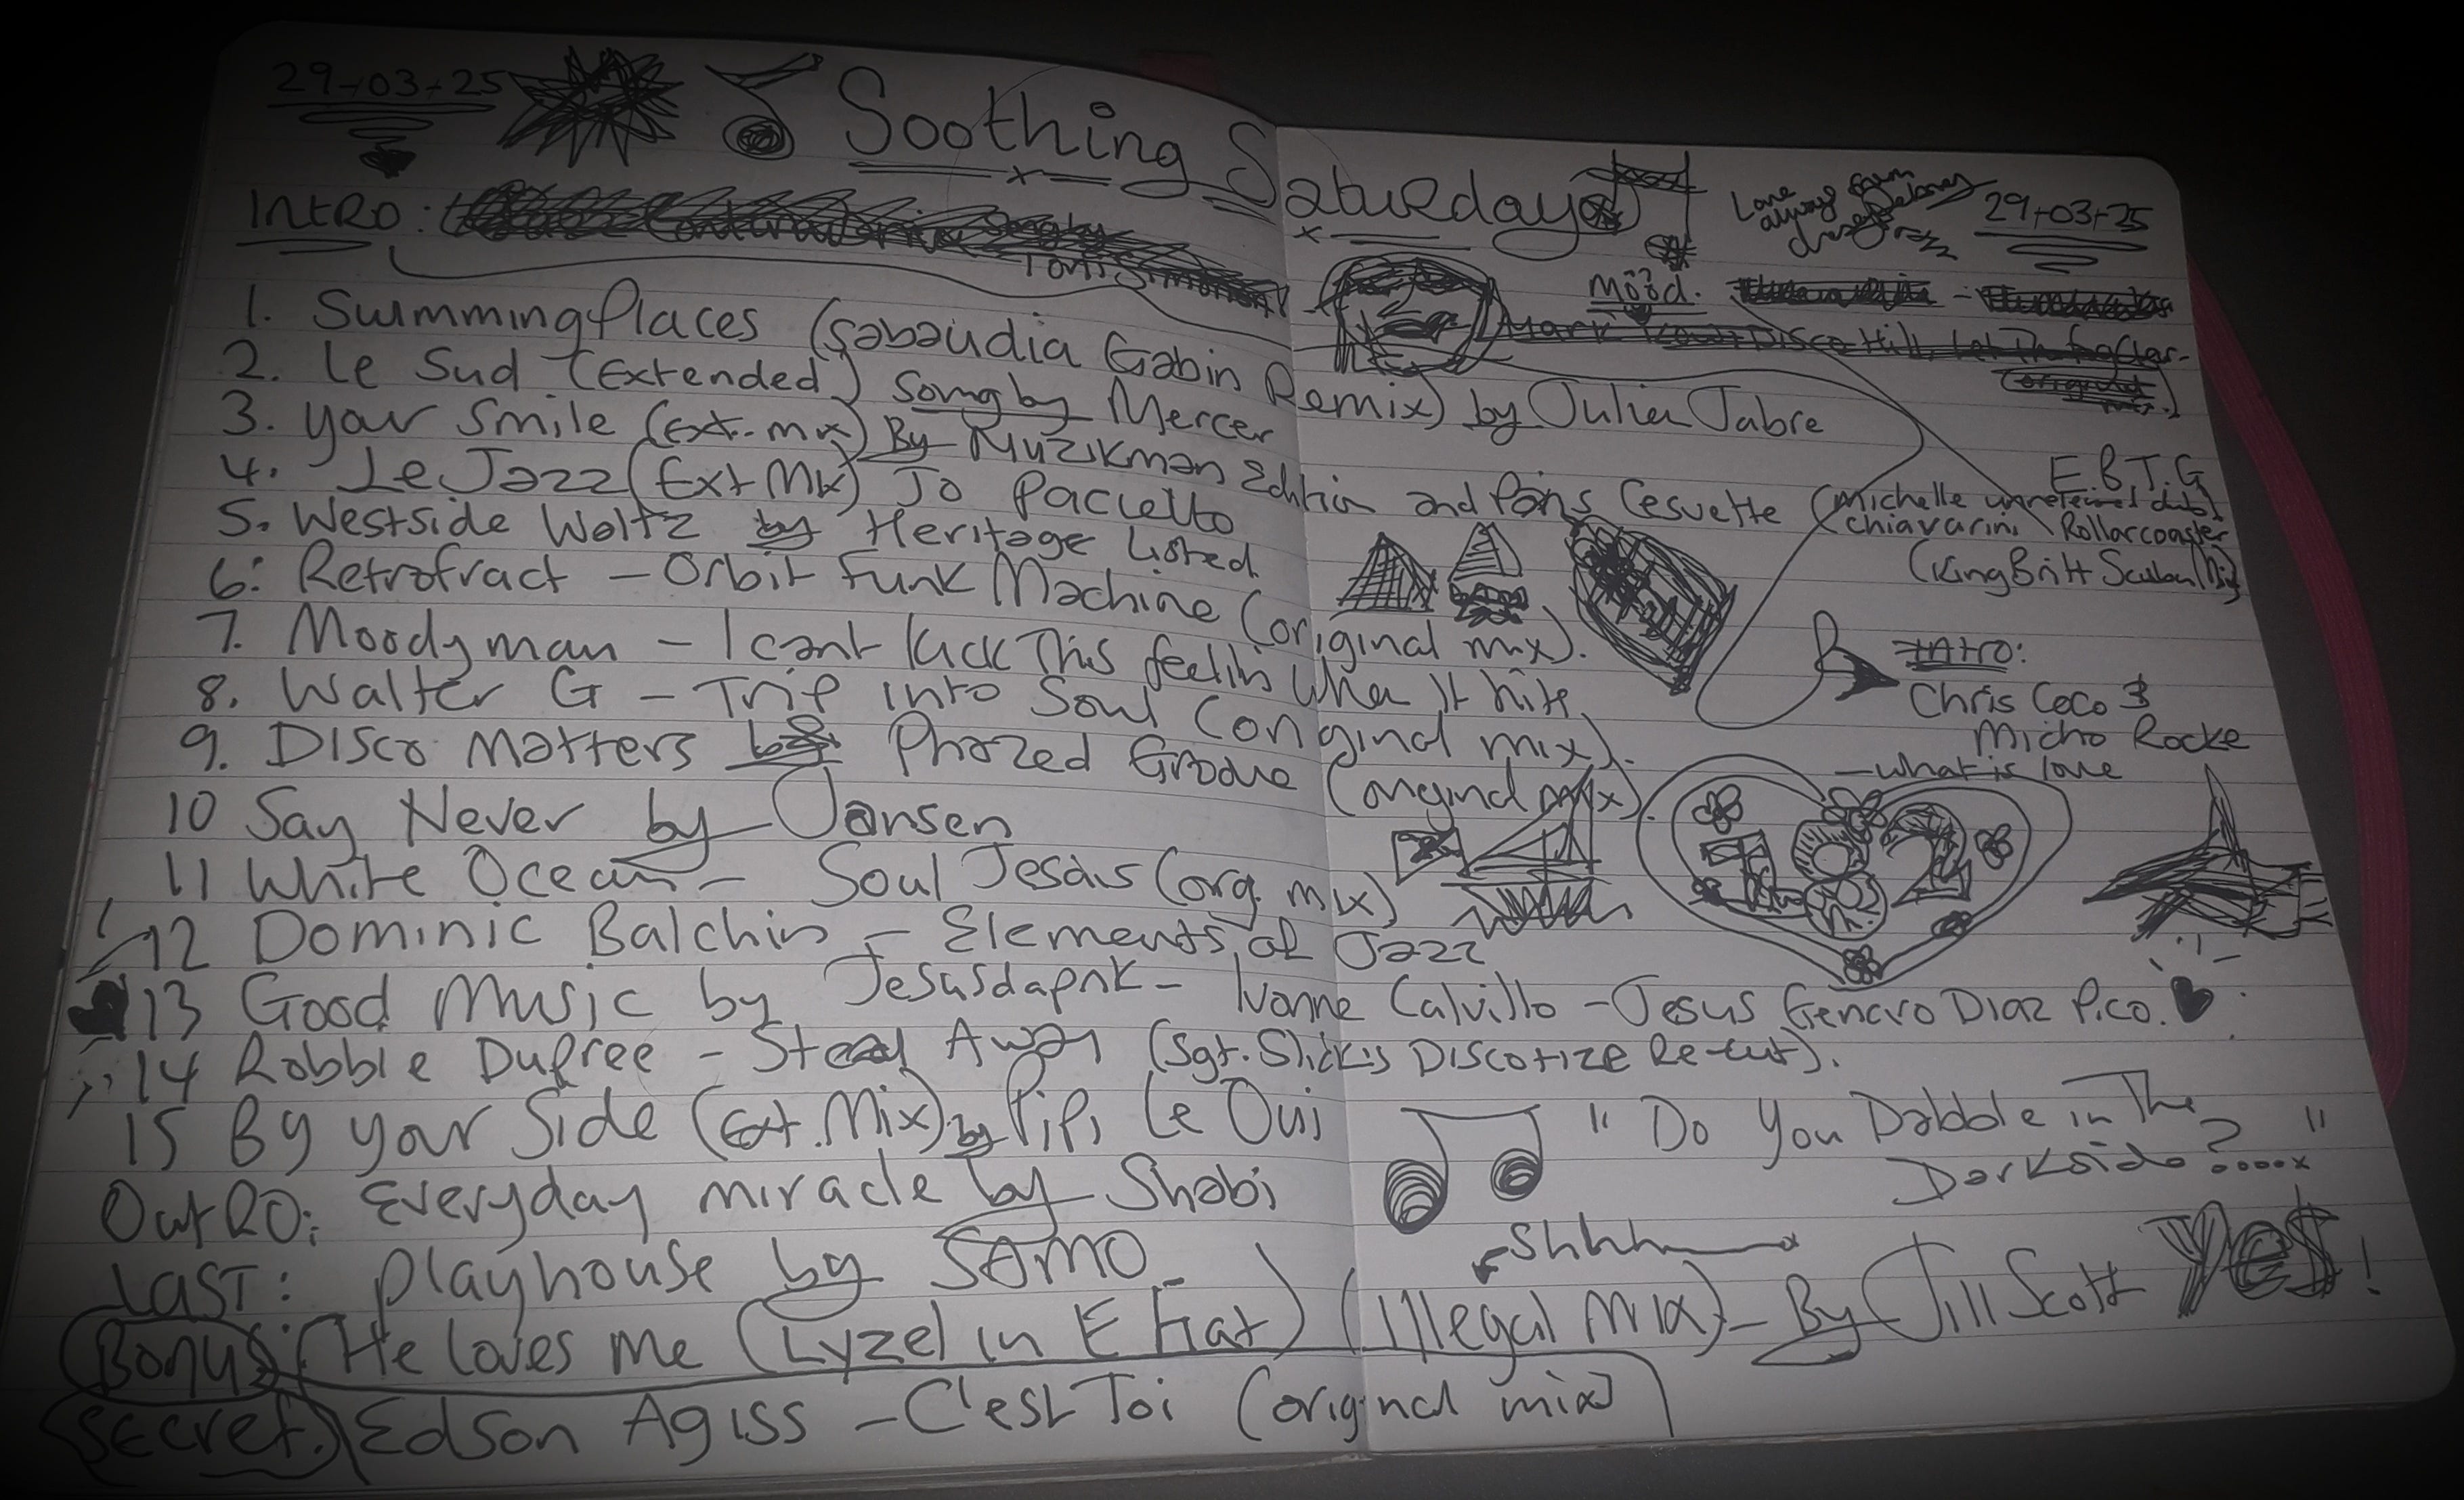 29-03-25
Soothing Saturdays
29-03-25
Love always from
INTRO:
Mood.
1. Swimming Places (Sabaudia Gabin Remix) by Julien Jabre
2. Le Sud (Extended) Song by Mercer
3. Your Smile (Ext. Mix) By Muzikman Edition and Pans Cesvette (Michelle Chiavarini unreleased dub)
4. Le Jazz (Ext Mix) Jo Paciello
5. Westside Waltz by Heritage Listed.
6. Retrofract - Orbit Funk Machine (original mix).
7. Moodyman - I cant kick This feelin When It hits.
8. Walter G - Trip into Soul (original mix).
9. Disco Matters by Phazed Groove (original mix).
10 Say Never by Jansen
11 White Ocean - Soul Jesus (org. mix)
12 Dominic Balchin - Elements of Jazz
13 Good Music by Jesusdapnk - Ivonne Calvillo - Jesus Genaro Diaz Pico.
14 Robbie Dupree - Steal Away (Sgt. Slick's Discotize Re-cut).
15 By your Side (Ext. Mix) by Pipi Le Oui
OutRO: Everyday miracle by Shabi
LAST: Playhouse by SAMO
Bonus: He loves me (Lyzel in E Flat) (Illegal Mix) - By Jill Scott Yes!
Secret. Edson Agiss - C'est Toi (original mix)
E.B.T.G
Rollarcoaster
(King Britt Scuba Mix)
Intro:
Chris Coco &
Micho Rocke
- what is love
182
"Do You Dabble in The
Darkside?....x"
Shhhh